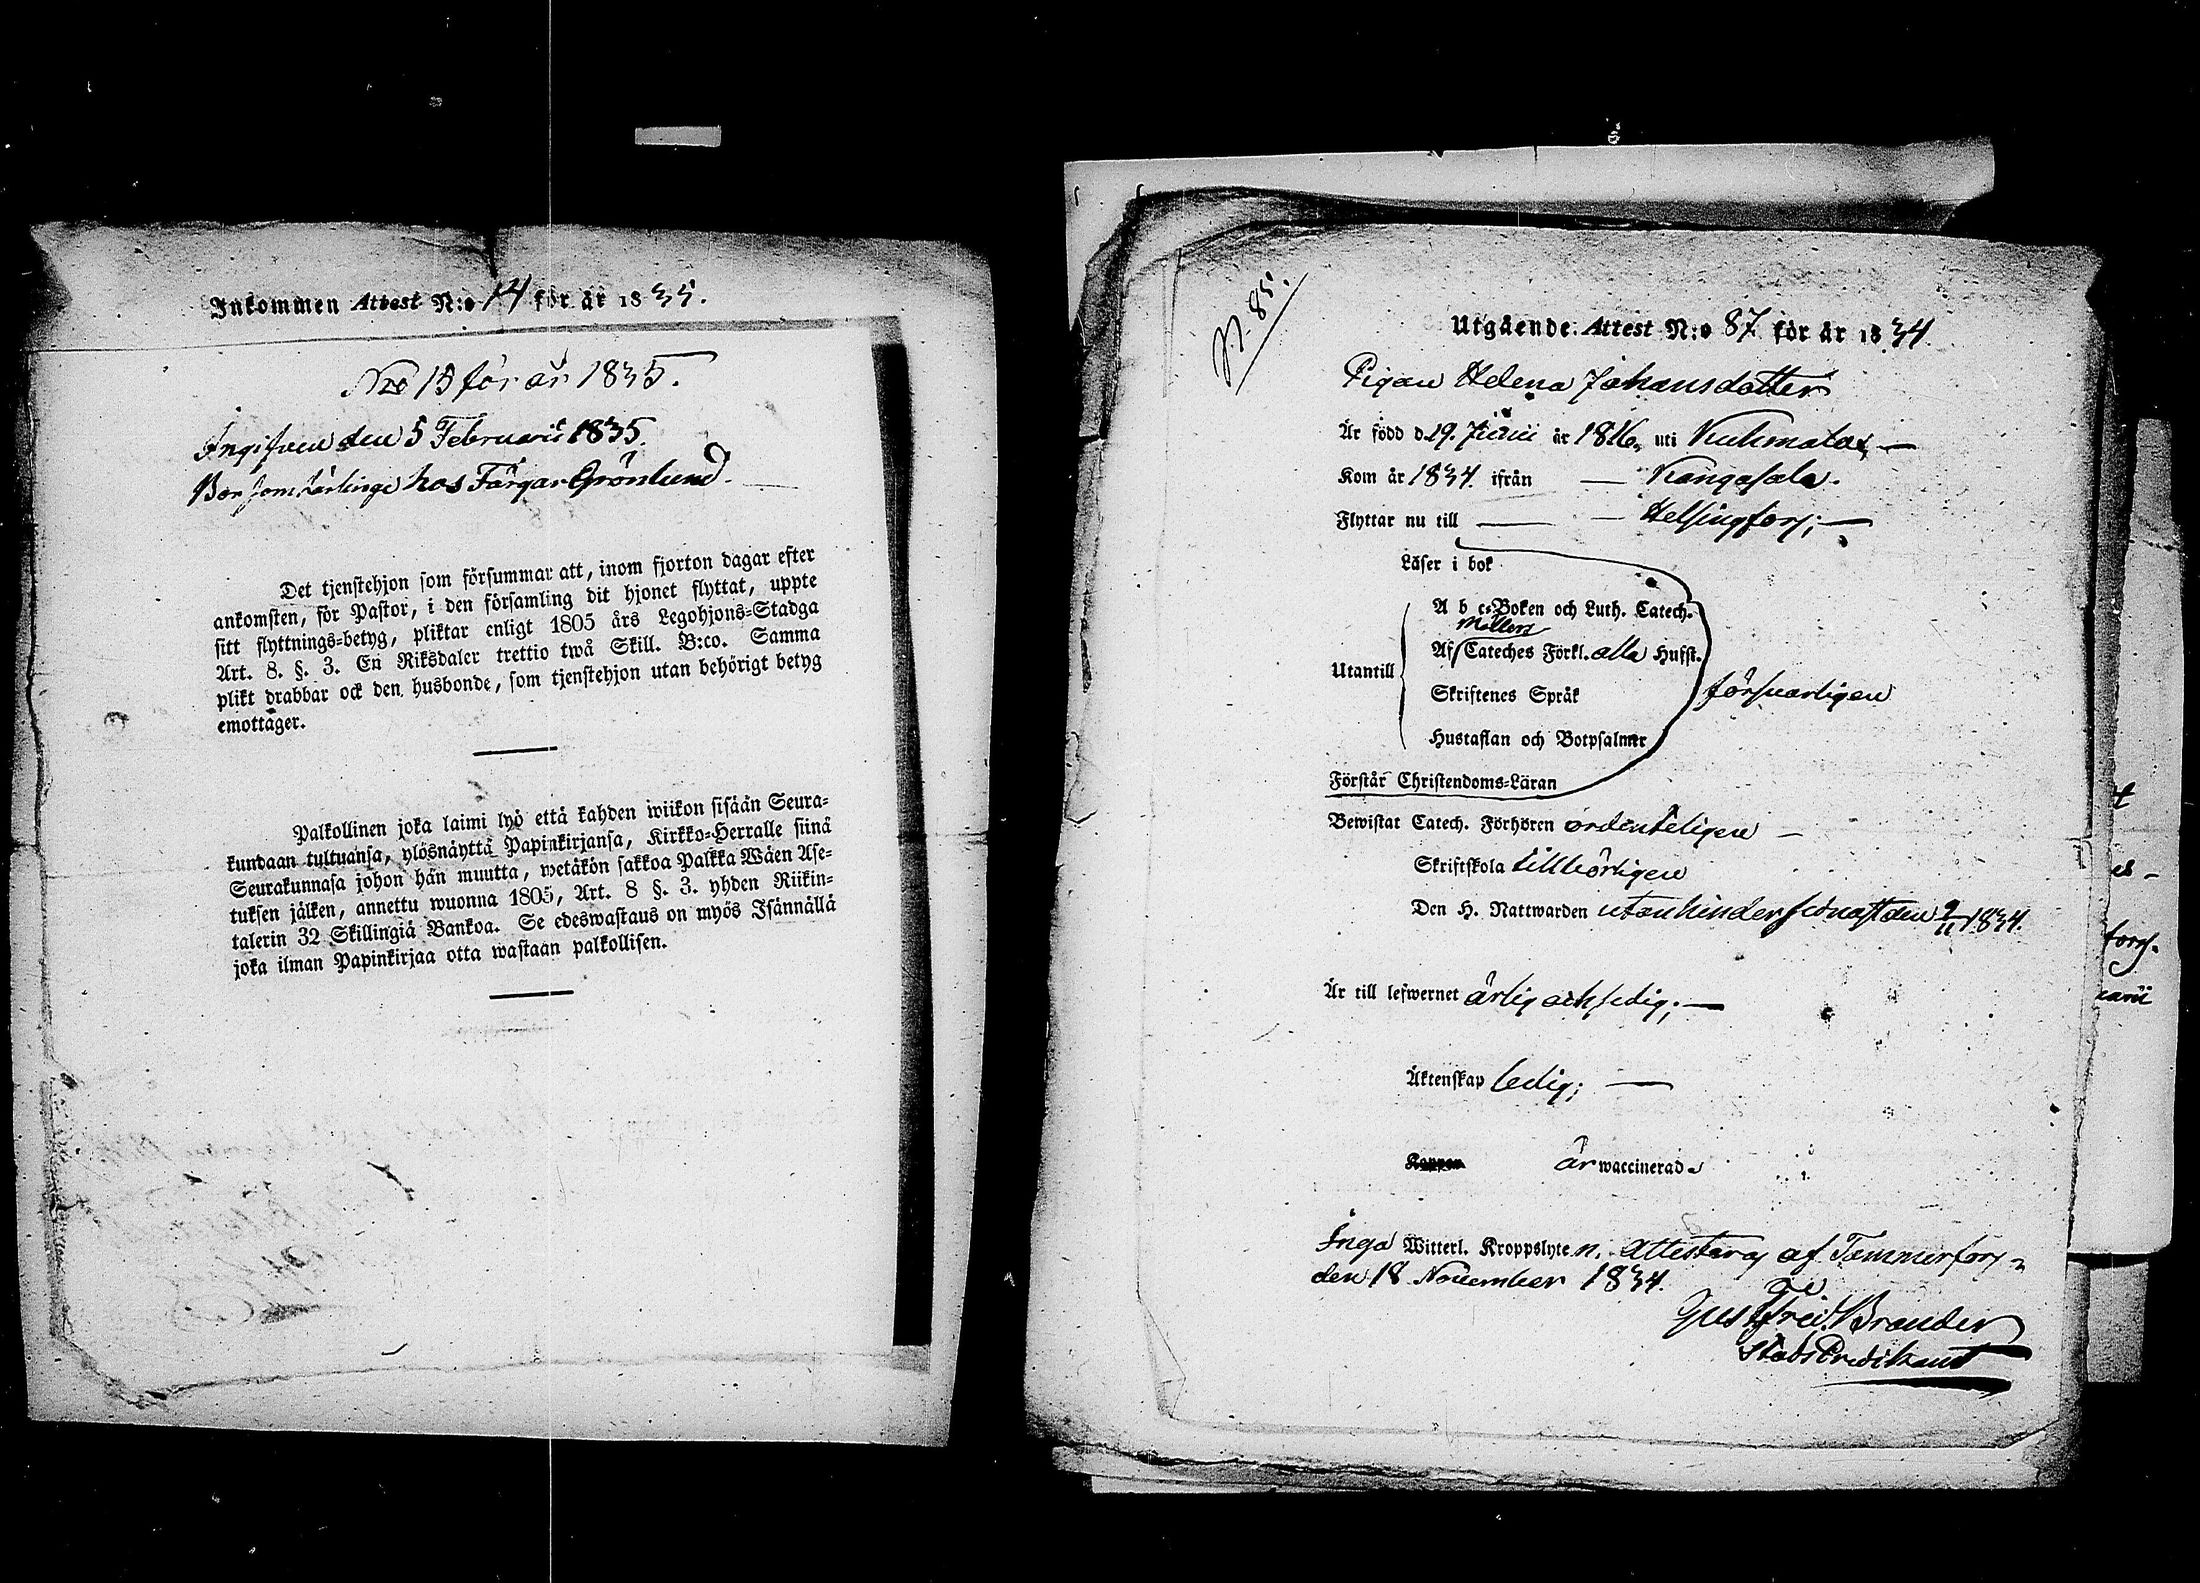 Inkommen Attest N:o 14 för år 1835.
No 15 för år 1835.
Ingifven den 5 Februarii 1835.
Bor som lärlinge hos Färgar Grönlund.
Det tjenstehjon som försummar att, inom fjorton dagar efter
ankomsten, för Pastor, i den församling dit hjonet flyttat, uppte
sitt flyttnings-betyg, pliktar enligt 1805 års Legohjons-Stadga
Art. 8. §. 3. En Riksdaler trettio twå Skill. B:co. Samma
plikt drabbar ock den husbonde, som tjenstehjon utan behörigt betyg
emottager.
Palkollinen joka laimi lyö että kahden wiikon sisään Seura-
kundaan tultuansa, ylösnäyttä Papinkirjansa, Kirkko-Herralle siinä
Seurakunnasa johon hän muutta, wetäkön sakkoa Palkka Wäen Ase-
tuksen jälken, annettu wuonna 1805, Art. 8 §. 3. yhden Riikin-
talerin 32 Skillingiä Bankoa. Se edeswastaus on myös Isännällä
joka ilman Papinkirjaa otta wastaan palkollisen.
N. 85.
Utgående Attest N:o 87 för år 1834
Pigan Helena Johansdotter
Är född d. 19. Junii år 1816, uti Kuhmalax
Kom år 1834 ifrån Kangasala.
Flyttar nu till Helsingfors;
Läser i bok
A b c-Boken och Luth. Catech.
Möllers
Utantill Af Cateches Förkl. alla Husst.
Skriftenes Språk försvarligen
Hustaflan och Botpsalmer
Förstår Christendoms-Läran
Bewistat Catech. Förhören ordenteligen
Skriftskola tillbörligen
Den H. Nattwarden utan hinder senast den 9/11 1834.
Är till lefwernet ärlig och sedig;
Äktenskap ledig;
Koppor är waccinerad
Inga Witterl. Kroppslyten. Attesteras af Tammerfors
den 18 November 1834.
Gust. Fred. Brander
Stads Predikant
fors.